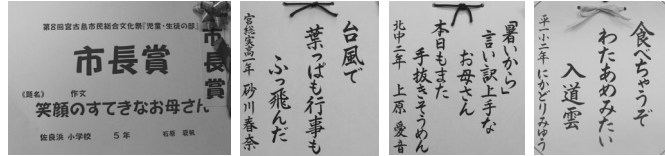 第8回宮古島市民総合文化祭『児童・生徒の部』
市長賞
市長賞
《題名》 作文
笑顔のすてきなお母さん
佐良浜 小学校 5年 石原
台風で
葉っぱも行事も
ふっ飛んだ
宮総実高一年 砂川春奈
「暑いから」
言い訳上手な
お母さん
本日もまた
手抜きそうめん
北中二年 上原愛音
食べちゃうぞ
わたあめみたい
入道雲
平一小二年 にかどりみゆう